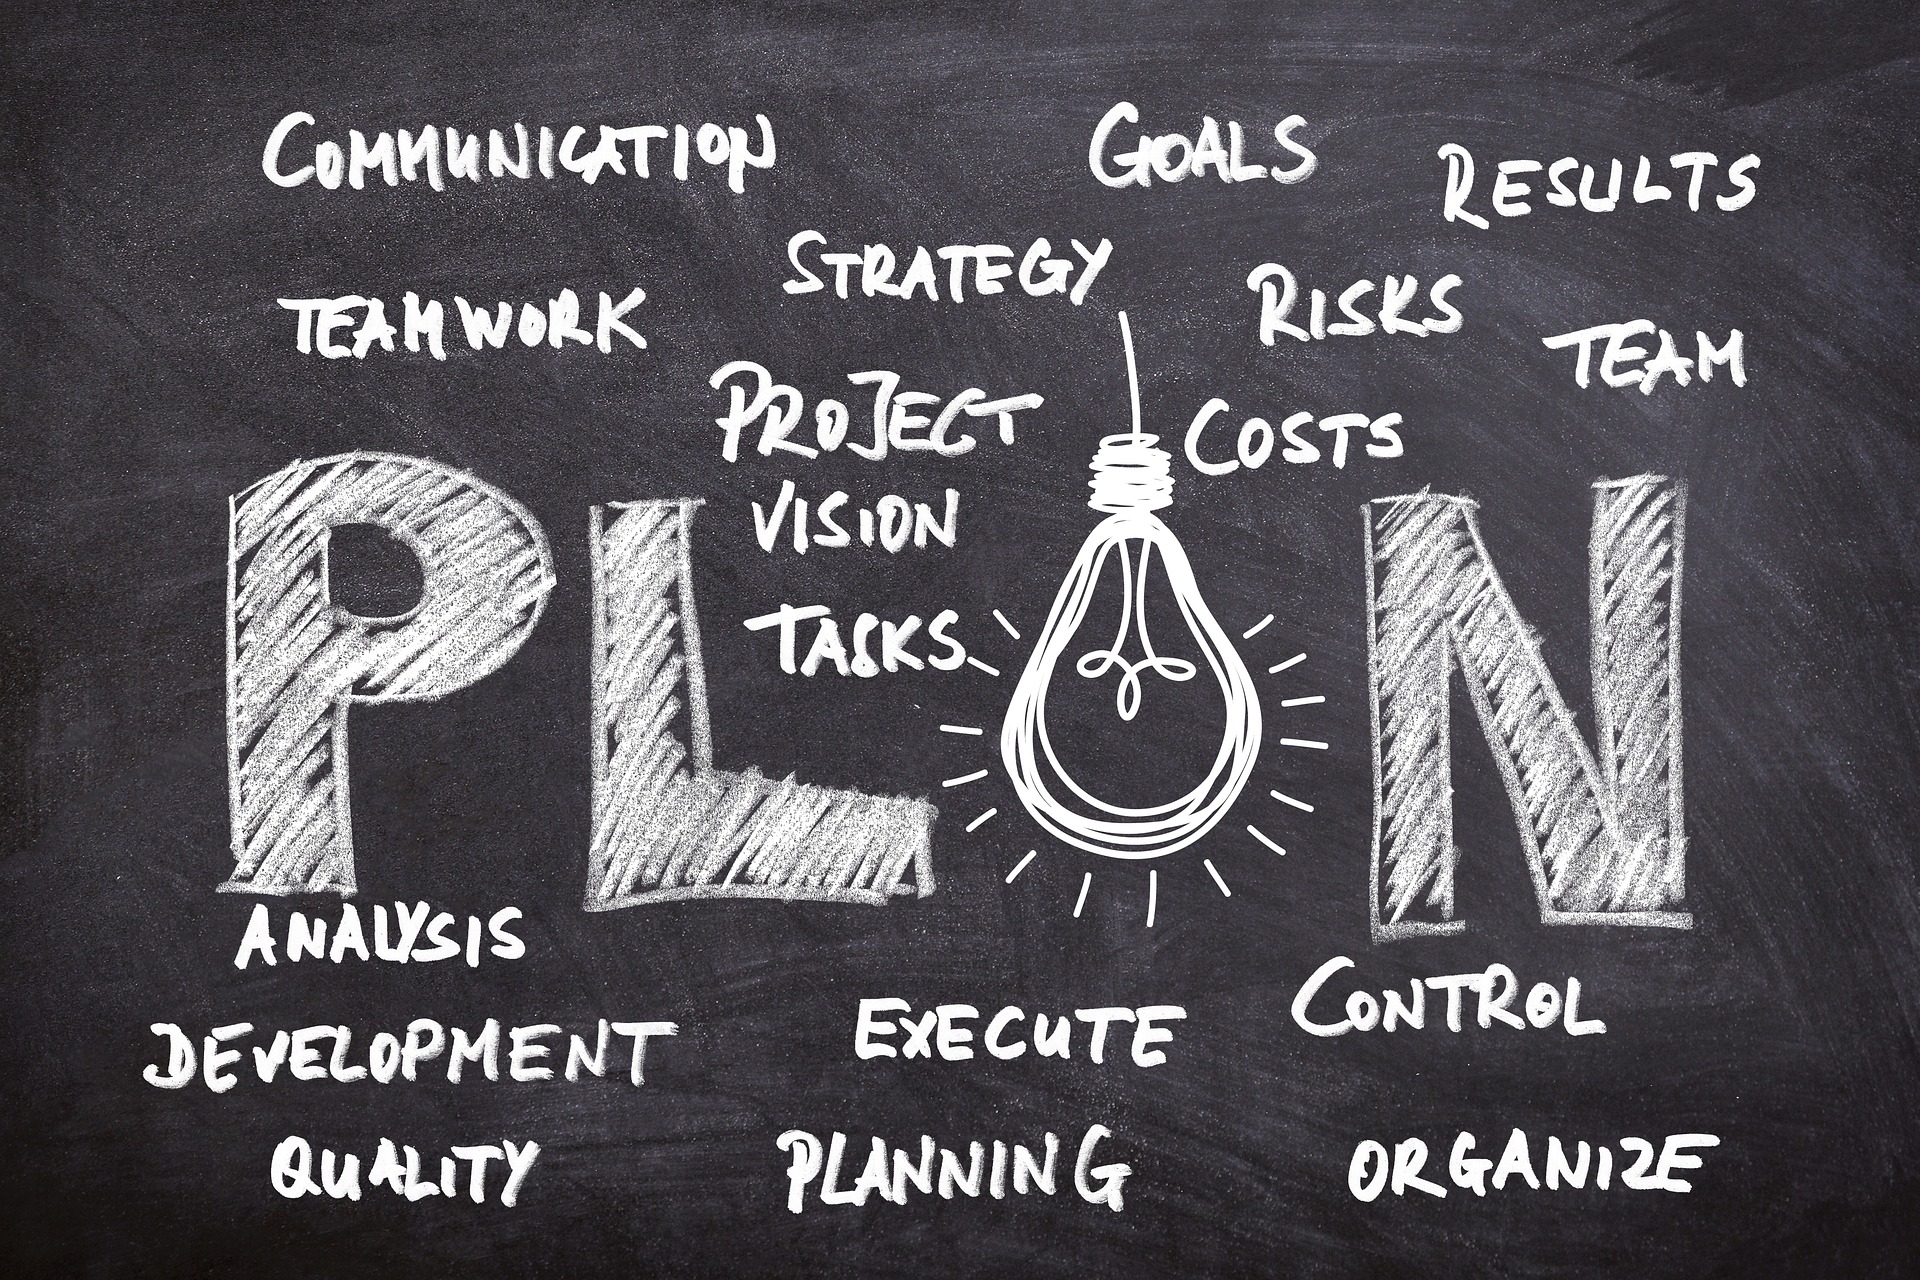 COMMUNICATION
GOALS
RESULTS
STRATEGY
RISKS
TEAMWORK
TEAM
PROJECT
COSTS
VISION
TASKS
PL N
ANALYSIS
CONTROL
DEVELOPMENT
EXECUTE
QUALITY
PLANNING
ORGANIZE